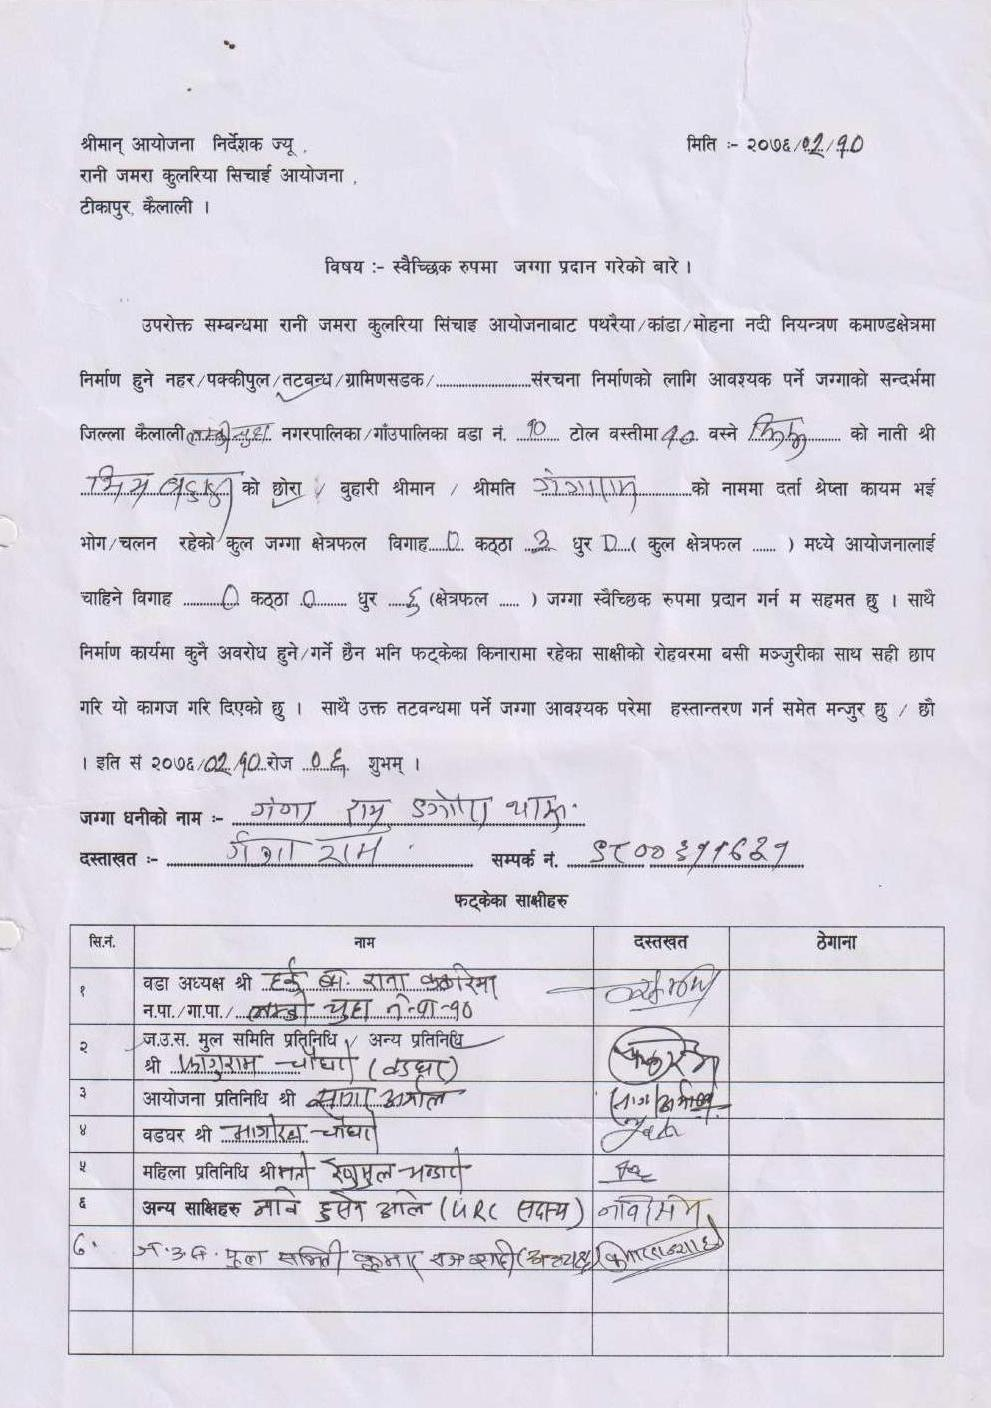 श्रीमान् आयोजना निर्देशक ज्यू , मिति :- २०७६/०2/१0
रानी जमरा कुलरिया सिचाई आयोजना ,
टीकापुर, कैलाली ।
विषय :- स्वैच्छिक रुपमा जग्गा प्रदान गरेको बारे ।
उपरोक्त सम्बन्धमा रानी जमरा कुलरिया सिंचाइ आयोजनावाट पथरैया/कांडा/मोहना नदी नियन्त्रण कमाण्डक्षेत्रमा
निर्माण हुने नहर/पक्कीपुल/तटबन्ध/ग्रामिणसडक/........................संरचना निर्माणको लागि आवश्यक पर्ने जग्गाको सन्दर्भमा
जिल्ला कैलाली लम्की चुहा नगरपालिका/गाँउपालिका वडा नं. १0 टोल वस्तीमा १0 वस्ने को नाती श्री
भिम बहादुर को छोरा / बुहारी श्रीमान / श्रीमति गंगाराम को नाममा दर्ता श्रेष्ता कायम भई
भोग/चलन रहेको कुल जग्गा क्षेत्रफल विगाह 0 कठ्ठा 3 धुर 0 ( कुल क्षेत्रफल ...... ) मध्ये आयोजनालाई
चाहिने विगाह 0 कठ्ठा 0 धुर ६ (क्षेत्रफल ..... ) जग्गा स्वैच्छिक रुपमा प्रदान गर्न म सहमत छु । साथै
निर्माण कार्यमा कुनै अवरोध हुने/गर्ने छैन भनि फट्केका किनारामा रहेका साक्षीको रोहवरमा बसी मञ्जुरीका साथ सही छाप
गरि यो कागज गरि दिएको छु । साथै उक्त तटवन्धमा पर्ने जग्गा आवश्यक परेमा हस्तान्तरण गर्न समेत मन्जुर छु / छौ
। इति सं २०७६/02/१0 रोज 0६ शुभम् ।
जग्गा धनीको नाम :- गंगा राम डगौरा थारू
दस्ताखत :- गंगा राम सम्पर्क नं. ९८००६११६३१
फट्केका साक्षीहरु
सि.नं. नाम दस्तखत ठेगाना
१ वडा अध्यक्ष श्री हर्क ब. राना
न.पा./गा.पा./ लम्की चुहा न.पा-१०
२ ज.उ.स. मुल समिति प्रतिनिधि / अन्य प्रतिनिधि
श्री फागुराम चौधरी
३ आयोजना प्रतिनिधि श्री सागर अर्याल
४ वडघर श्री चौधरी
५ महिला प्रतिनिधि श्रीमती
६ अन्य साक्षिहरु (URC सदस्य)
७. ज.उ.स. मुल समिती कुमार राज शाही (अध्यक्ष)